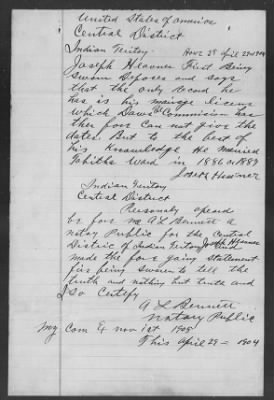 United States of america
Central District
Indian Teritory. Howe I.T. April 29 1904
Joseph Heavner First Being
sworn Deposes and says
that the only record he
has is his mariage licens
which Daws Commision has
ther fore Can not give the
dates. But to the best of
his Knowledge He married
Tabitha Ward in 1886 or 1887
Joseph Heavner
Indian Teritory
Central District
Personaly apeard
be fore me A L Bennett a
notay Public for the Central
District of Indian Teritory Joseph Heavner
made the fore going statement
firs being sworn to tell the
truth and nothing but truth and
I so Certify
A L Bennett
Notary Public
My Com Ex nov 1st 1905
This April 29 = 1904